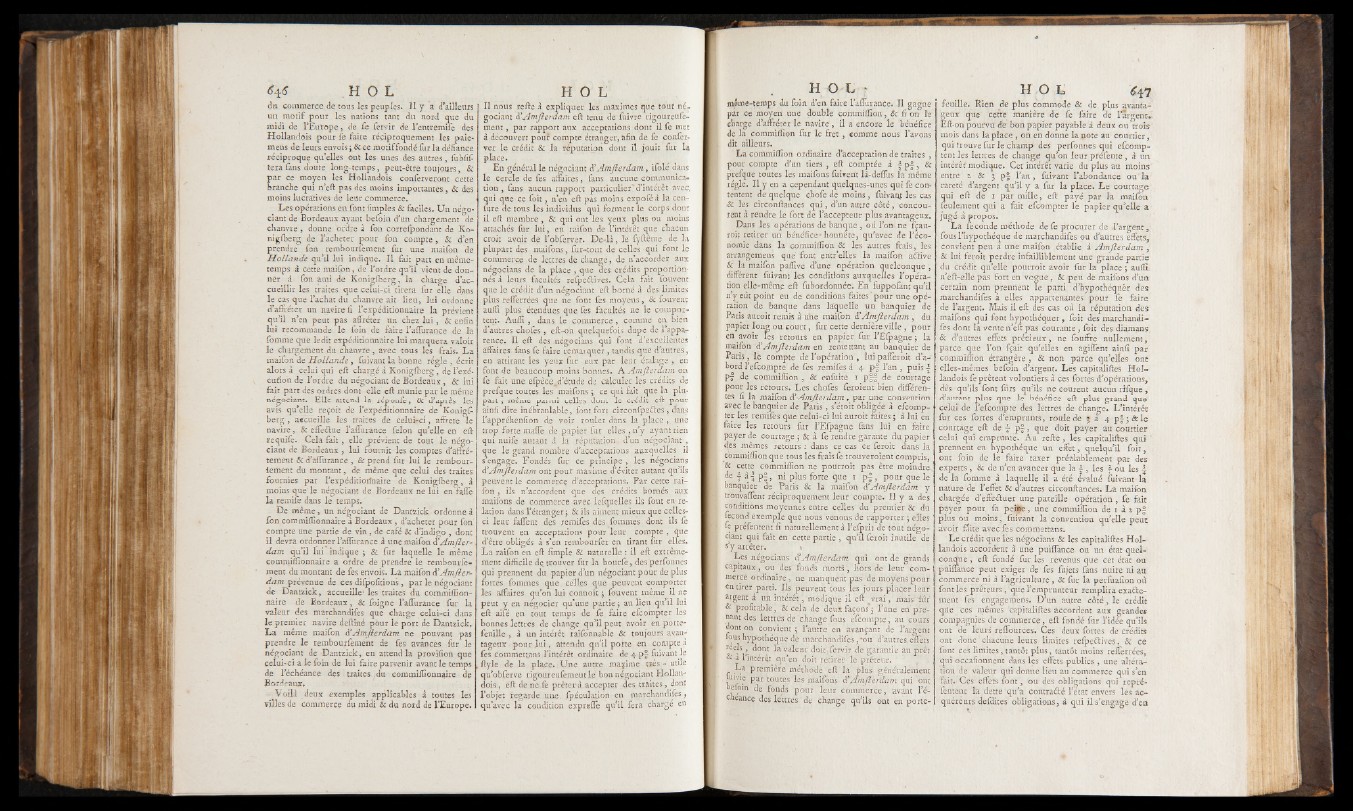 646 HOL
du commerce de tous les peuples. Il y a d'ailleurs
un motif pour les nations tant du nord que du
midi de l'Europe, de se servir de l'entremise des
Hollandois pour se faire réciproquement les paie-
mens de leurs envois; & ce motif fondé sur la défiance
réciproque qu'elles ont les unes des autres, subsis-
tera sans doute long-temps, peut-être toujours, &
par ce moyen les Hollandois conserveront cette
branche qui n'est pas des moins importantes, & des
moins lucratives de leur commerce.
Les opérations en sont simples & faciles. Un négo-
ciant de Bordeaux ayant besoin d'un chargement de
chanvre, donne ordre à son correspondant de Ko-
nigsberg de l'acheter pour son compte, & d'en
prendre son remboursement sur une maison de
Hollande qu'il lui indique. Il fait part en même-
temps à cette maison, de l'ordre qu'il vient de don-
ner à son ami de Konigsberg, la charge d'ac-
cueillir les traites que celui-ci tirera sur elle dans
le cas que l'achat du chanvre ait lieu, lui ordonne
d'affréter un navire si l'expéditionnaire la prévient
qu'il n'en peut pas affréter un chez lui, & enfin
lui recommande le soin de faire l'assurance de la
somme que ledit expéditionnaire lui marquera valoir
le chargement du chanvre, avec tous les frais. La
maison de Hollande, suivant la bonne règle, écrit
alors à celui qui est chargé à Konigsberg, de l'exé-
cution de l'ordre du négociant de Bordeaux, & lui
fait part des ordres dont elle est munie par le même
négociant. Elle attend la réponse, & d'après les
avis qu'elle reçoit de l'expéditionnaire de Konigs-
berg, accueille les traites de celui-ci, affrete le
navire, & effectue l'assurance selon qu'elle en est
requise. Cela fait, elle prévient de tout le négo-
ciant de Bordeaux, lui fournit les comptes d'affré-
tement & d'assurance, & prend sur lui le rembour-
sement du montant, de même que celui des traites
fournies par l'expéditionnaire de Konigsberg, à
moins que le négociant de Bordeaux ne lui en fasse
la remise dans le temps.
De même, un négociant de Dantzick ordonne à
son commissionnaire à Bordeaux, d'acheter pour son
compte une partie de vin, de café & d'indigo, dont
il devra ordonner l'assurance à une maison d'Amster-
dam qu'il lui indique; & sur laquelle le même
commissionnaire a ordre de prendre le rembourse-
ment du montant de ses envois. La maison d'Amster-
dam prévenue de ces dispositions, par le négociant
de Dantzick, accueille les traites du commission-
naire de Bordeaux, & soigne l'assurance sur la
valeur des marchandises que charge celui-ci dans
le premier navire destiné pour le port de Dantzick.
La même maison d'Amsterdam ne pouvant pas
prendre le remboursement de ses avances sur le
négociant de Dantzick, en attend la provision que
celui-ci a le soin de lui faire parvenir avant le temps
de l'échéance des traites du commissionnaire de
Bordeaux.
Voilà deux exemples applicables à toutes les
villes de commerce du midi & du nord de l'Europe.
HOL
Il nous reste à expliquer les maximes que tout né-
gociant d'Amsterdam est tenu de suivre rigoureuse-
ment, par rapport aux acceptations dont il se met
à découvert pour compte étranger, afin de se conser-
ver le crédit & la réputation dont il jouit sur la
place.
En général le négociant d'Amsterdam, isolé dans
le cercle de ses affaires, sans aucune communica-
tion, sans aucun rapport particulier d'intérêt avec
qui que ce soit, n'en est pas moins exposé à la cen-
sure de tous les individus qui forment le corps dont
il est membre, & qui ont les yeux plus ou moins
attachés sur lui, en raison de l'intérêt que chacun
croit avoir de l'observer. De-là, le système de la
plupart des maisons, sur-tout de celles qui font le
commerce de lettres de change, de n'accorder aux
négocians de la place, que des crédits proportion-
nés à leurs facultés respectives. Cela fait souvent
que le crédit d'un négociant est borné à des limites
plus resserrées que ne sont ses moyens, & souvent
aussi plus étendues que ses facultés ne le compor-
tent. Aussi, dans le commerce, comme en bien
d'autres choses, est-on quelquefois dupe de l'appa-
rence. Il est des négocians qui font d'excellentes
affaires sans se faire remarquer, tandis que d'autres,
en attirant les yeux sur eux par leur étalage, en
font de beaucoup moins bonnes. A Amsterdam on
se fait une espèce d'étude de calculer les crédits de
presque toutes les maisons; ce qui fait que la plu-
part, même parmi celles dont le crédit est pour
ainsi dire inébranlable, sont fort circonspectes, dans
l'appréhension de voir rouler dans la place, une
trop forte masse de papier sur elles, n'y ayant rien
qui nuise autant à la réputation d'un négociant,
que le grand nombre d'acceptations auxquelles il
s'engage. Fondés sur ce principe, les négocians
d'Amsterdam ont pour maxime d'éviter autant qu'ils
peuvent le commerce d'acceptations. Par cette rai-
son, ils n'accordent que des crédits bornés aux
maisons de commerce avec lesquelles ils sont en re-
lation dans l'étranger; & ils aiment mieux que celles-
ci leur fassent des remises des sommes dont ils se
trouvent en acceptations pour leur compte, que
d'être obligés à s'en rembourser en tirant sur elles.
La raison en est simple & naturelle: il est extrême-
ment difficile de trouver sur la bourse, des personnes
qui prennent du papier d'un négociant pour de plus
fortes sommes que celles que peuvent comporter
les affaires qu'on lui connoît; souvent même il ne
peut y en négocier qu'une partie; au lieu qu'il lui
est aisé en tout temps de se faire escompter les
bonnes lettres de change qu'il peut avoir en porte-
feuille, à un intérêt raisonnable & toujours avan-
tageux pour lui, attendu qu'il porte en compte à
ses commettans l'intérêt ordinaire de 4 p° suivant le
style de la place. Une autre maxime très-utile
qu'observe rigoureusement le bon négociant Hollan-
dois, est de ne se prêter à accepter des traites, dont
l'objet regarde une spéculation en marchandises,
qu'avec la condition expresse qu'il sera chargé en
HOL
même-temps du soin d'en faire l'assurance. Il gagne
par ce moyen une double commission, & si on le
charge d'affréter le navire, il a encore le bénéfice
de la commission sur le fret, comme nous l'avons
dit ailleurs.
La commission ordinaire d'acceptation de traites,
pour compte d'un tiers, est comptée à ½ p°, &
presque toutes les maisons suivent là-dessus la même
règle. Il y en a cependant quelques-unes qui se con-
tentent de quelque chose de moins, suivant les cas
& les circonstances qui, d'un autre côté, concou-
rent à rendre le sort de l'accepteur plus avantageux.
Dans les opérations de banque, où l'on ne sçau-
roit retirer un bénéfice honnête, qu'avec de l'éco-
nomie dans la commission & les autres frais, les
arrangemens que font entr'elles la maison active
& la maison passive d'une opération quelconque,
diffèrent suivant les conditions auxquelles l'opéra-
tion elle-même est subordonnée. En supposant qu'il
n'y eût point eu de conditions faites pour une opé-
ration de banque dans laquelle un banquier de
Paris auroit remis à une maison d'Amsterdam, du
papier long ou court, sur cette dernière ville, pour
en avoir les retours en papier sur l'Espagne; la
maison d'Amsterdam en remettant au banquier de
Paris, le compte de l'opération, lui passeroit d'a-
bord l'escompte de ses remises à 4 p° l'an, puis
p° de commission, & ensuite 1 p°° de courtage
pour les retours. Les choses seroient bien différen-
tes si la maison d'Amsterdam, par une convention
avec le banquier de Paris, s'étoit obligée à escomp-
ter les remises que celui-ci lui auroit faites; à lui en
faire les retours sur l'Espagne sans lui en faire
payer de courtage; & à se rendre garante du papier
des mêmes retours: dans ce cas ce seroit dans la
commission que tous les frais se trouveroient compris,
& cette commission ne pourroit pas être moindre
de p°, ni plus forte que 1 p°, pour que le
banquier de Paris & la maison d'Amsterdam y
trouvassent réciproquement leur compte. Il y a des
conditions moyennes entre celles du premier & du
second exemple que nous venons de rapporter; elles
se présentent si naturellement à l'esprit de tout négo-
ciant qui fait en cette partie, qu'il seroit inutile de
s'y arrêter.
Les négocians d'Amsterdam qui ont de grands
capitaux, ou des fonds morts, hors de leur com-
merce ordinaire, ne manquent pas de moyens pour
en tirer parti. Ils peuvent tous les jours placer leur
argent à un intérêt, modique il est vrai, mais sûr
& profitable, & cela de deux façons; l'une en pre-
nant des lettres de change sous escompte, au cours
dont on convient; l'autre en avançant de l'argent
sous hypothéque de marchandises, ou d'autres effets
réels, dont la valeur doit servir de garantie au prêt
& à l'intérêt qu'en doit retirer le prêteur.
La première méthode est la plus généralement
suivie par toutes les maisons d'Amsterdam qui ont
besoin de fonds pour leur commerce, avant l'é-
chéance des lettres de change qu'ils ont en porte-
HOL 647
feuille. Rien de plus commode & de plus avanta-
geux que cette manière de se faire de l'argent.
Est on pourvu de bon papier payable à deux ou trois
mois dans la place, on en donne la note au courtier,
qui trouve sur le champ des personnes qui escomp-
tent les lettres de change qu'on leur présente, à un
intérêt modique. Cet intérêt varie du plus au moins
entre 2 & 3 p° l'an, suivant l'abondance ou la
rareté d'argent qu'il y a sur la place. Le courtage
qui est de 1 par mille, est payé par la maison
seulement qui a fait escompter le papier qu'elle a
jugé à propos.
La seconde méthode de se procurer de l'argent,
sous l'hypothéque de marchandises ou d'autres effets,
convient peu à une maison établie à Amsterdam,
& lui feroit perdre infailliblement une grande partie
du crédit qu'elle pourroit avoir sur la place; aussi
n'est-elle pas fort en vogue, & peu de maisons d'un
certain nom prennent le parti d'hypothéquer des
marchandises à elles appartenantes pour se faire
de l'argent. Mais il est des cas où la réputation des
maisons qui font hypothéquer, soit des marchandi-
ses dont la vente n'est pas courante, soit des diamans
& d'autres effets précieux, ne souffre nullement,
parce que l'on sçait qu'elles en agissent ainsi par
commission étrangère, & non parce qu'elles ont
elles-mêmes besoin d'argent. Les capitalistes Hol-
landois se prêtent volontiers à ces sortes d'opérations,
dès qu'ils sont sûrs qu'ils ne courent aucun risque,
d'autant plus que le bénéfice est plus grand que
celui de l'escompte des lettres de change. L'intérêt
sur ces sortes d'emprunts, roule de 3 à 4 p°; & le
courtage est de ½ p°, que doit payer au courtier
celui qui emprunte. Au reste, les capitalistes qui
prennent en hypothéque un effet, quelqu'il soit,
ont soin de le faire taxer préalablement par des
experts, & de n'en avancer que la ½, les ou les
de la somme à laquelle il a été évalué suivant la
nature de l'effet & d'autres circonstances. La maison
chargée d'effectuer une pareille opération, se fait
payer pour sa peine, une commission de 1 à 2 p°
plus ou moins, suivant la convention qu'elle peut
avoir faite avec ses commettans.
Le crédit que les négocians & les capitalistes Hol-
landois accordent à une puissance ou un état quel-
conque, est fondé sur les revenus que cet état ou
puissance peut exiger de ses sujets sans nuire ni au
commerce ni à l'agriculture, & sur la persuasion où
sont les prêteurs, que l'emprunteur remplira exacte-
ment ses engagemens. D'un autre côté, le crédit
que ces mêmes capitalistes accordent aux grandes
compagnies de commerce, est fondé sur l'idée qu'ils
ont de leurs ressources. Ces deux sortes de crédits
ont donc chacune leurs limites respectives, & ce
sont ces limites, tantôt plus, tantôt moins resserrées,
qui occasionnent dans les effets publics, une altéra-
tion de valeur qui donne lieu au commerce qui s'en
fait. Ces effets sont, ou des obligations qui repré-
sentent la dette qu'a contracté l'état envers les ac-
quéreurs desdites obligations, à qui il s'engage d'en